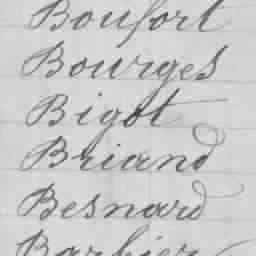 Boufort
Bourges
Bigot
Briand
Besnard
Barbier